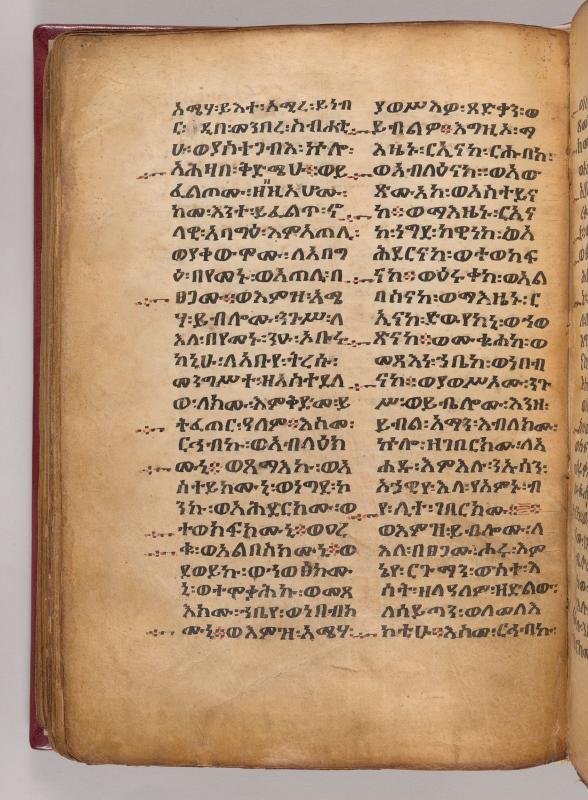 አሜሃ፡ይእተ፡አሚረ፡ይነብ
ር፡ ዲበ፡መንበረ፡ስብሐቲ
ሁ፡ወያስተጋብእ፡ኵሎ፡
አሕዛበ፡ቅድሜሁ፨ወይ
ፈልጦሙ፡ዘዚአሆሙ፡
ከመ፡እንተ፡ይፈልጥ፡ኖ
ላዊ፡አባግዕ፡እምአጠሊ፡
ወየቀውሞሙ፡ለአባግ
ዕ፡በየመኑ፡ወአጠሊ፡በ
ፀጋሙ፨ወእምዝ፡አሜ
ሃ፡ይብሎሙ፡ንጉሥ፡ለ
እለ፡በየመኑ፡ንዑ፡ኦቡሩ
ካኒሁ፡ለአቡየ፡ትረሱ፡
መንግሥተ፡ዘአስተደለ
ወ፡ለክሙ፡እምቅድመ፡ይ
ትፈጠር፡ዓለም፡እስመ፡
ርኅብኩ፡ወአብላዕክ
ሙኒ፨ወጸማእኩ፡ወአ
ስተይክሙኒ፡ወነግደ፡ኮ
ንኩ፡ወአሕደርክሙ፡ወ
ተወከፍክሙኒ፨ወዐረ
ቁ፡ወአልበስክሙኒ፨ወ
ደወይኩ፡ወኀወፅክሙ
ኒ፡ወተሞቃሕኩ፡ወመጻ
እክሙ፡ኀቤየ፡ወነበብክ
ሙኒ፨ወእምዝ፡አሜሃ፡
ያወሥእዎ፡ጻድቃን፡ወ
ይብልዎ፨እግዚኦ፡ማ
እዜኑ፡ርኢናከ፡ርሑበከ፡
ወአብላዕናከ፡ወእመ
ጽሙእከ፡ወአስተይና
ከ፨ወማእዜኑ፡ርኢና
ከ፡ነግደ፡ከዊነከ፡ወአ
ሕደርናከ፡ወተወከፍ
ናከ፨ወዕሩቀከ፡ወአል
በስናከ፡ወማእዜኑ፡ር
ኢናከ፡ድውየከኒ፡ወኀወ
ጽናከ፨ወሙቁሐከ፡ወ
መጻእነ፡ኀቤከ፡ወነበብ
ናከ፨ወያወሥእሙ፡ንጉ
ሥ፡ወይቤሎሙ፡እንዘ፡
ይብል፡አማን፡እብለክሙ፡
ኵሎ፡ዘገበርክሙ፡ለአ
ሐዱ፡እምእሉ፡ንኡሳን፡
አኀዊየ፡እለ፡የአምኑ፡ብ
የ፡ሊተ፡ገበርክሙ፨
ወእምዝ፡ይቤሎሙ፡ለ
እለ፡በፀጋሙ፡ሑሩ፡እም
ኔየ፡ርጉማን፡ውስተ፡እ
ሳት፡ዘለዓለም፡ዘድልው፡
ለሰይጣን፡ወለመላእ
ክቲሁ፨እስመ፡ርኅብኩ፡